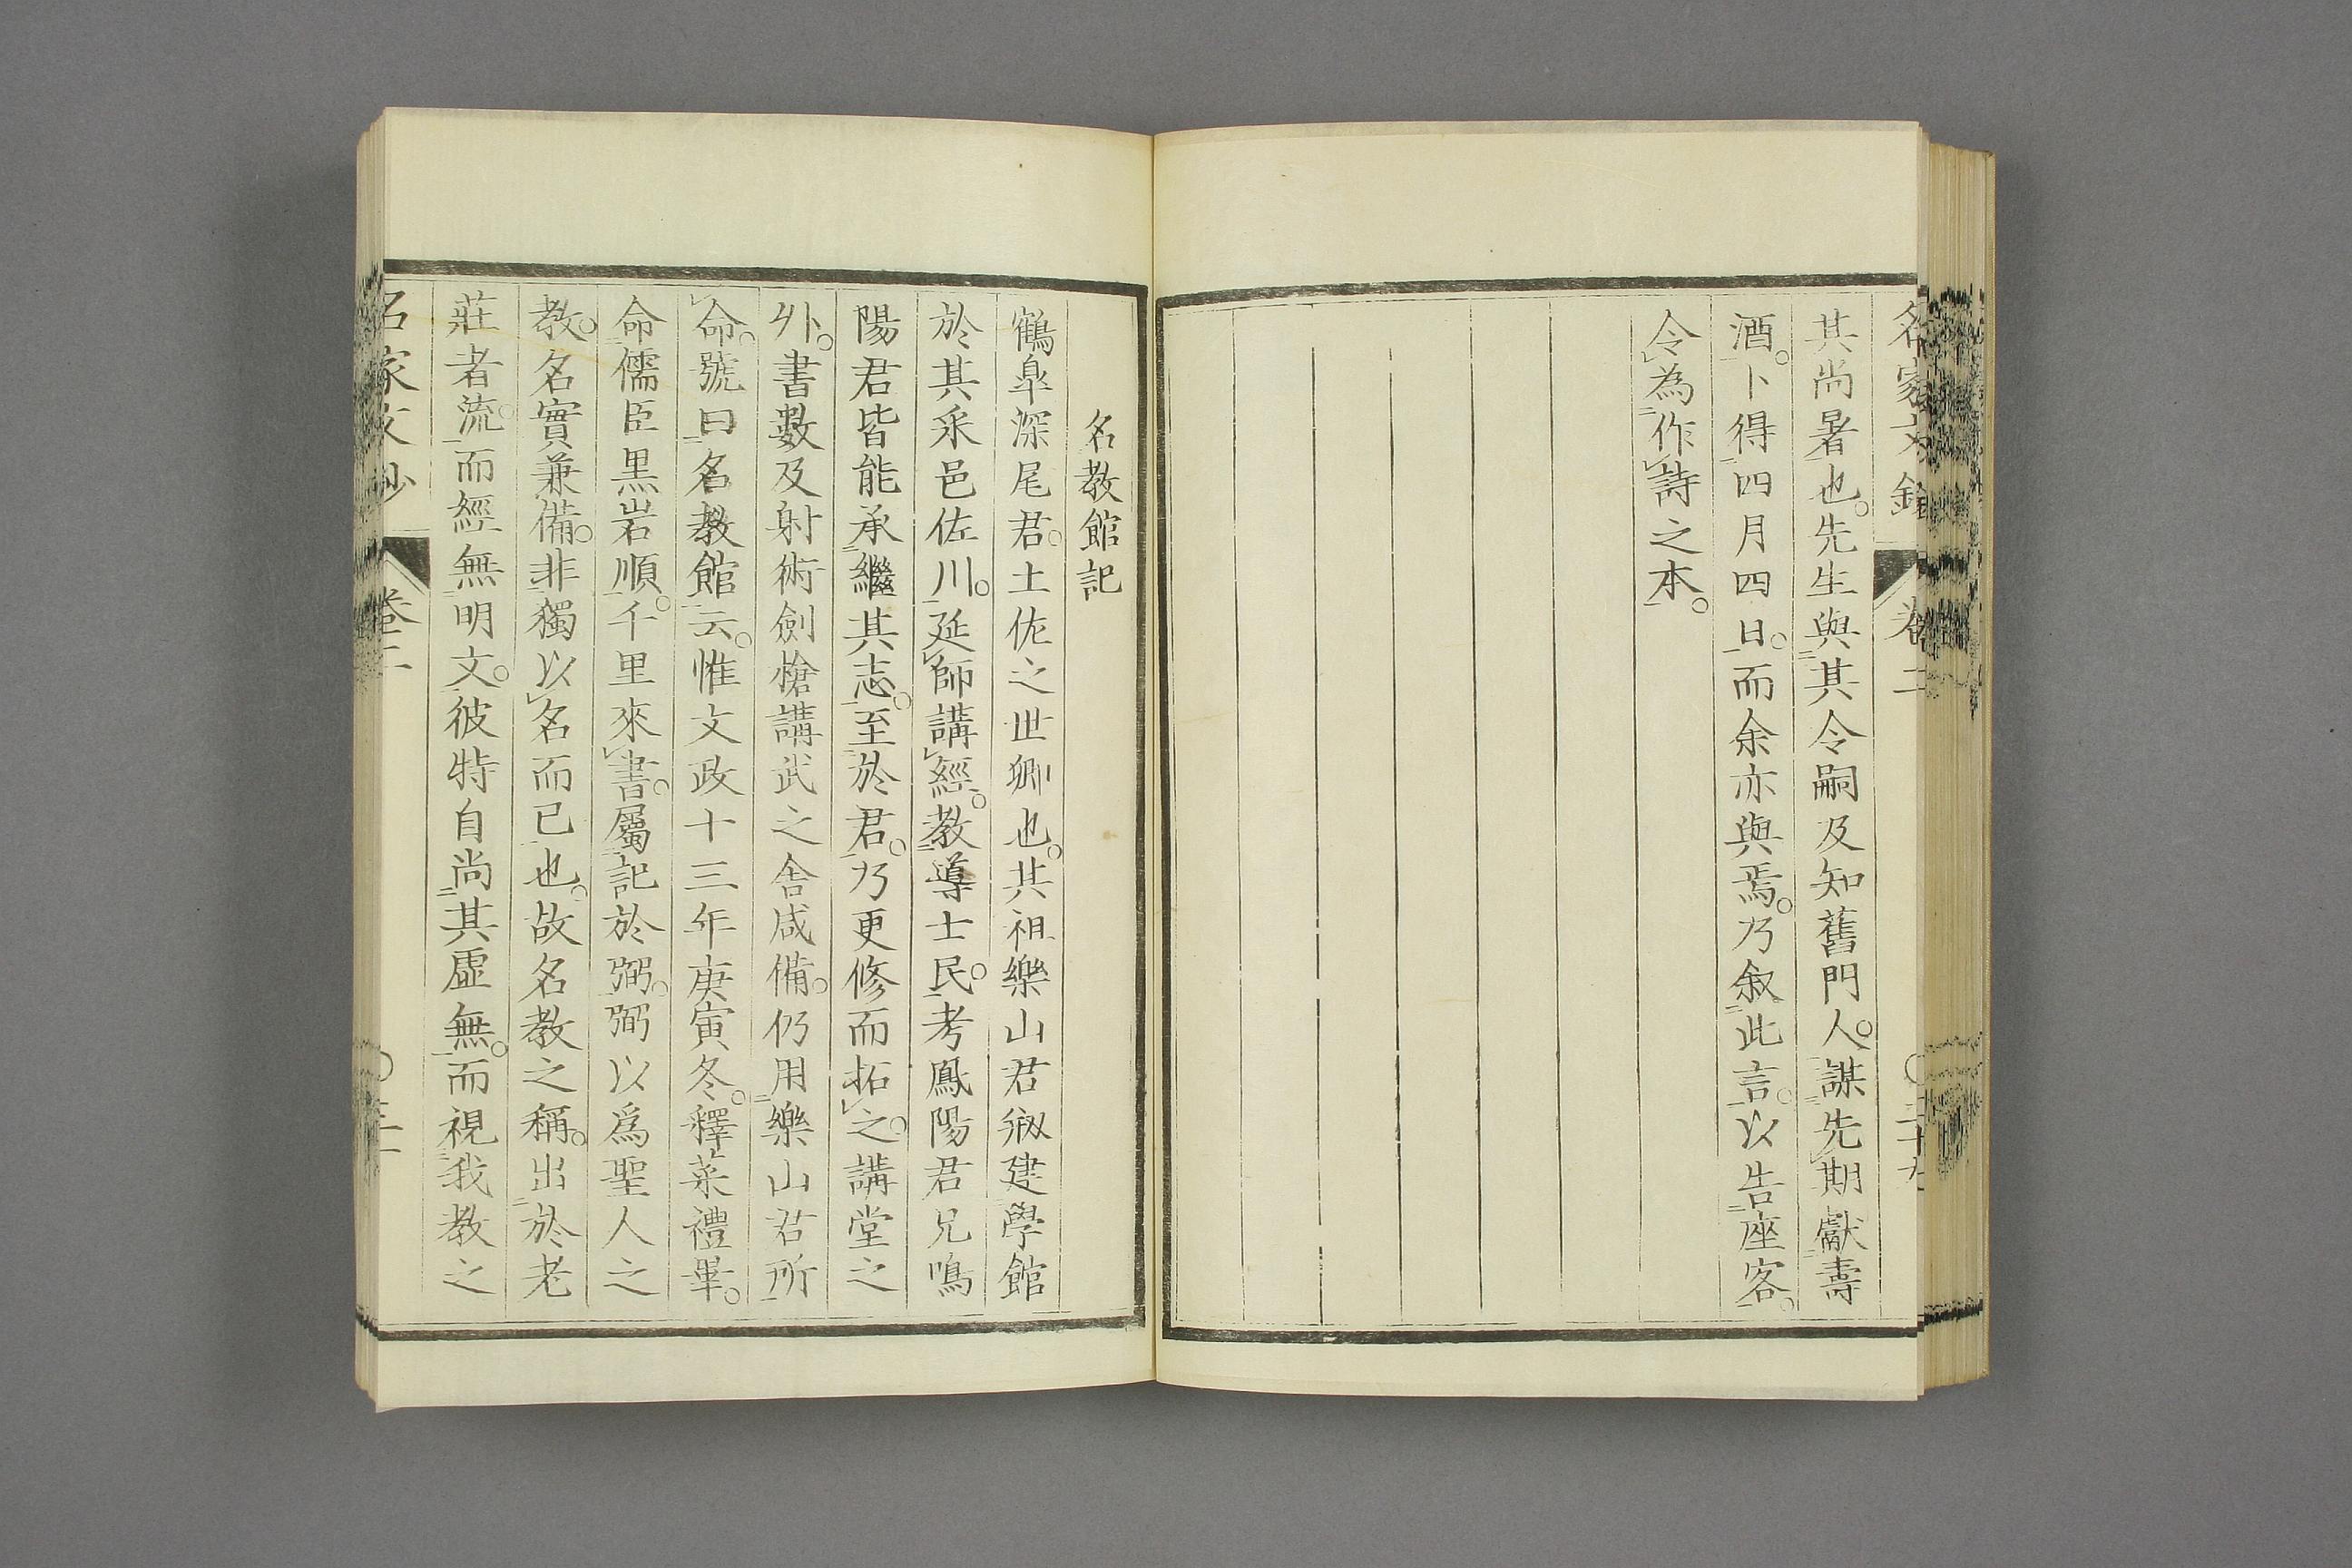 名家文鈔 卷二 二十九
其尚暑也。先生與其令嗣及知舊門人。謀先期獻壽
酒。卜得四月四日。而余亦與焉。乃叙此言。以告座客。
令為作詩之本。
名教館記
鶴皐深尾君。土佐之世卿也。其祖樂山君叔建學館
於其采邑佐川。延師講經。教導士民。考鳳陽君兄鳴
陽君皆能承繼其志。至於君。乃更修而拓之。講堂之
外。書數及射術劍槍講武之舎咸備。仍用樂山君所
命。號曰名教館云。惟文政十三年庚寅冬。釋菜禮畢。
命儒臣黒岩順。千里來書。屬記於弼。弼以爲聖人之
教。名實兼備。非獨以名而已也。故名教之稱。出於老
莊者流。而經無明文。彼特自尚其虛無。而視我教之
名家文鈔 卷二